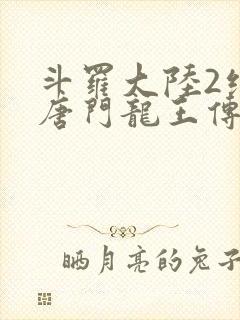 斗羅大陸2絕
唐門龍王傳
晒月亮的兔子